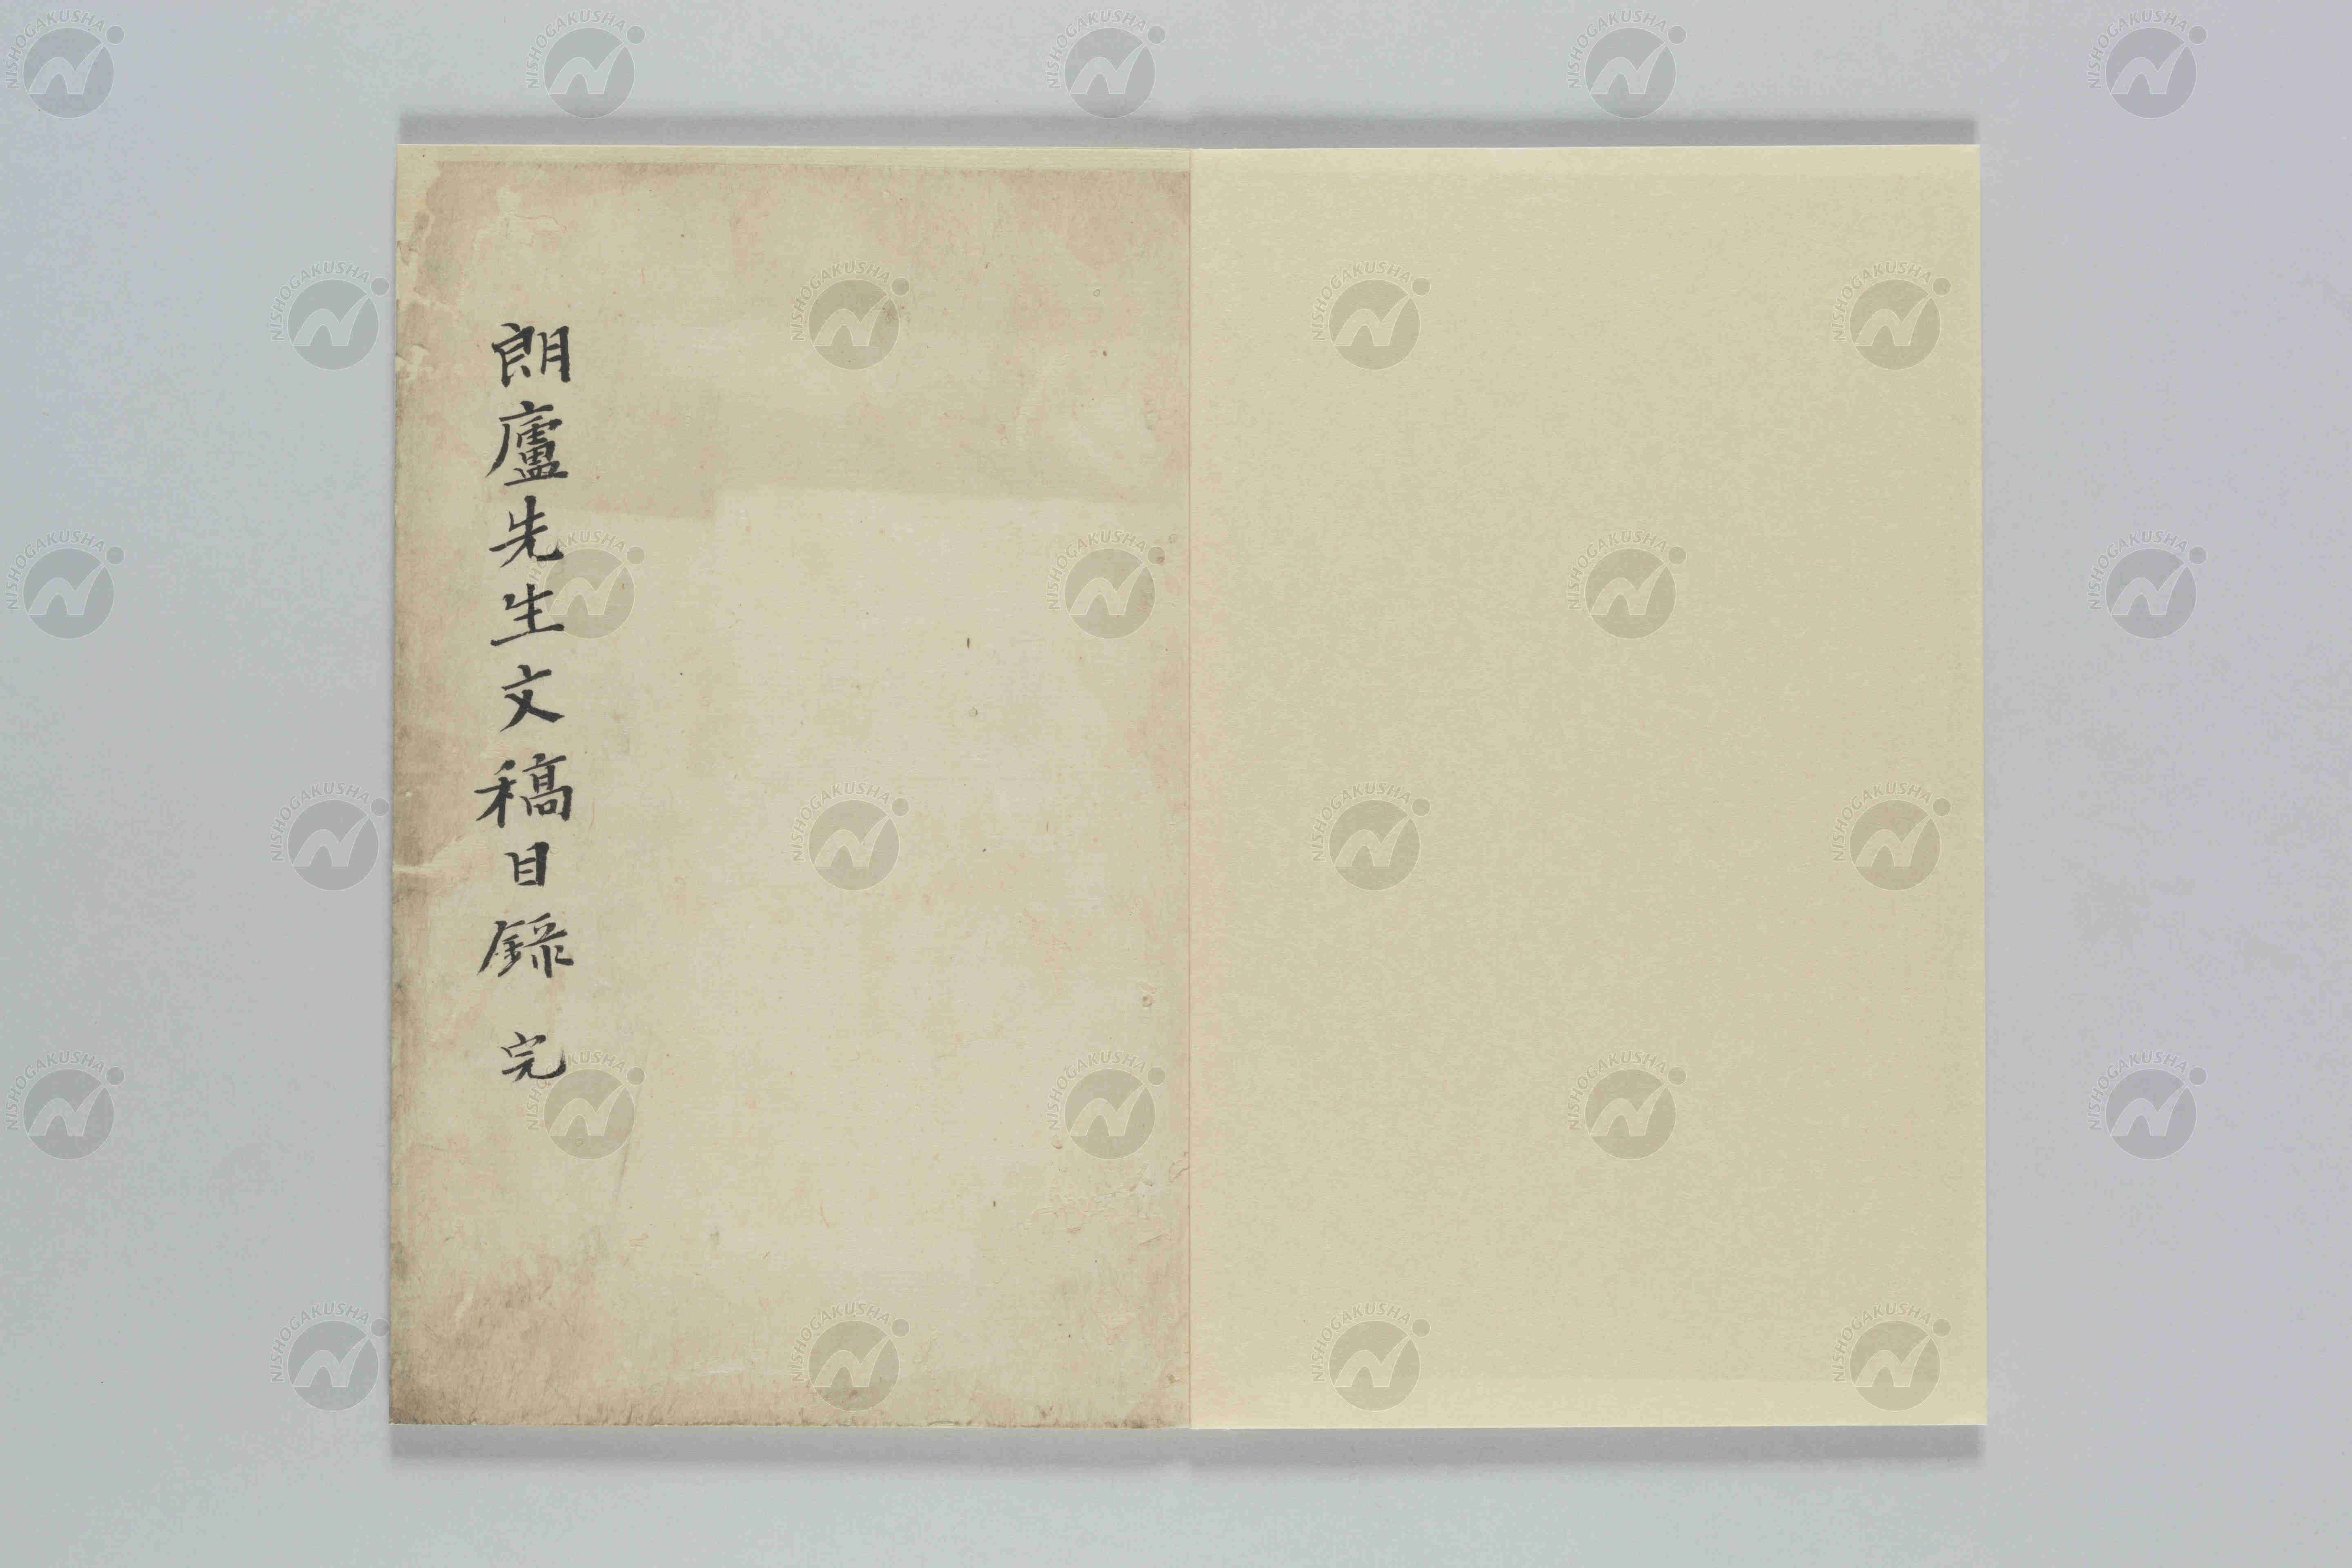 朗廬先生文稿目録 完